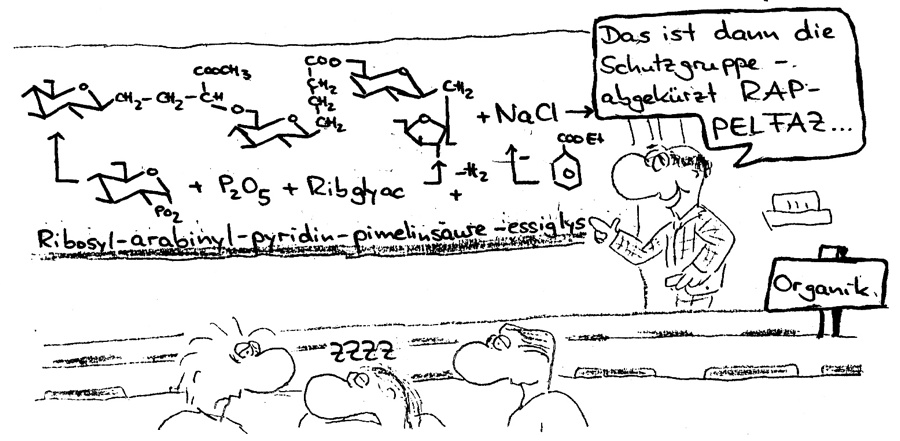 Das ist dann die
Schutzgruppe -
abgekürzt RAP-
PELFAZ...
COOCH3
COO
CH2
CH2
CH2
CH2-CH2-CH
O
O
O
O
CH2
+ NaCl →
COOEt
O
PO2
+ P2O5 + Ribglyac
-H2
+
-
Ribosyl-arabinyl-pyridin-pimelinsäure-essiglys
Organik.
ZZZZ